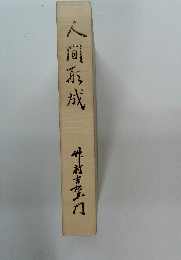 人間形成
竹村吉右衛門